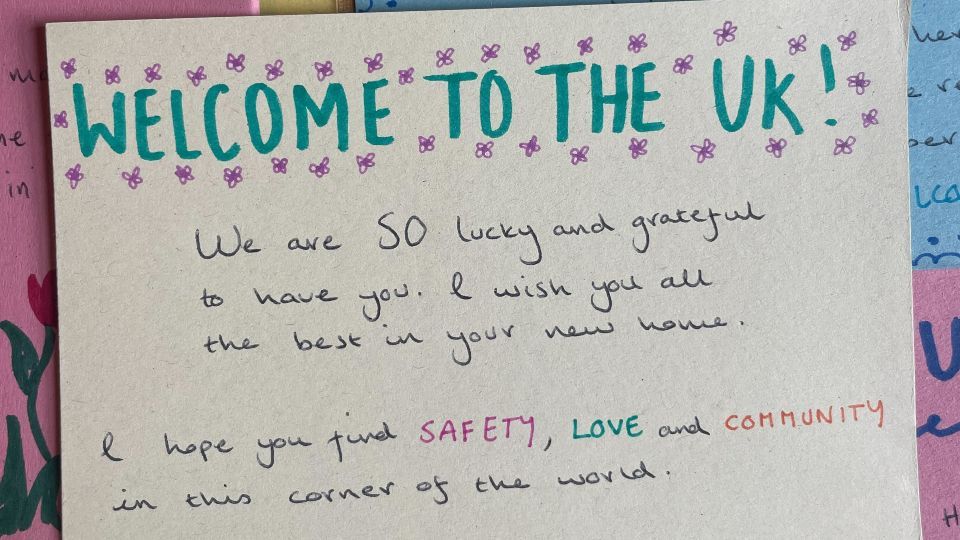 WELCOME TO THE UK!
We are SO lucky and grateful
to have you. I wish you all
the best in your new home.
I hope you find SAFETY, LOVE and COMMUNITY
in this corner of the world.
in